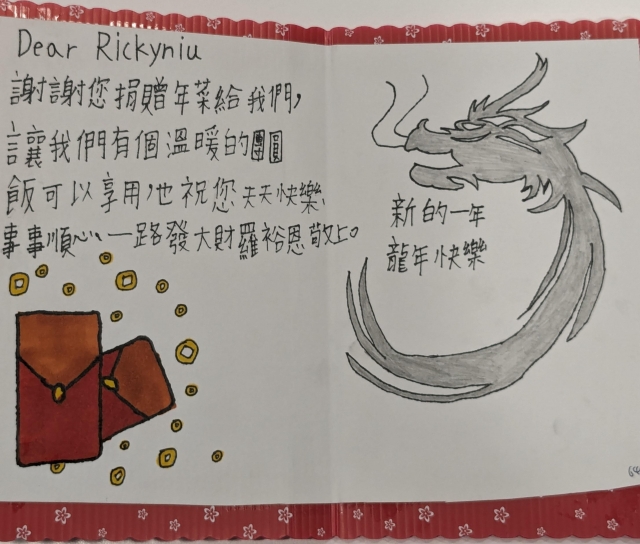 Dear Rickyniu
謝謝您捐贈年菜給我們,
讓我們有個溫暖的團圓
飯可以享用,也祝您天天快樂、
事事順心、一路發大財羅裕恩敬上。
新的一年
龍年快樂